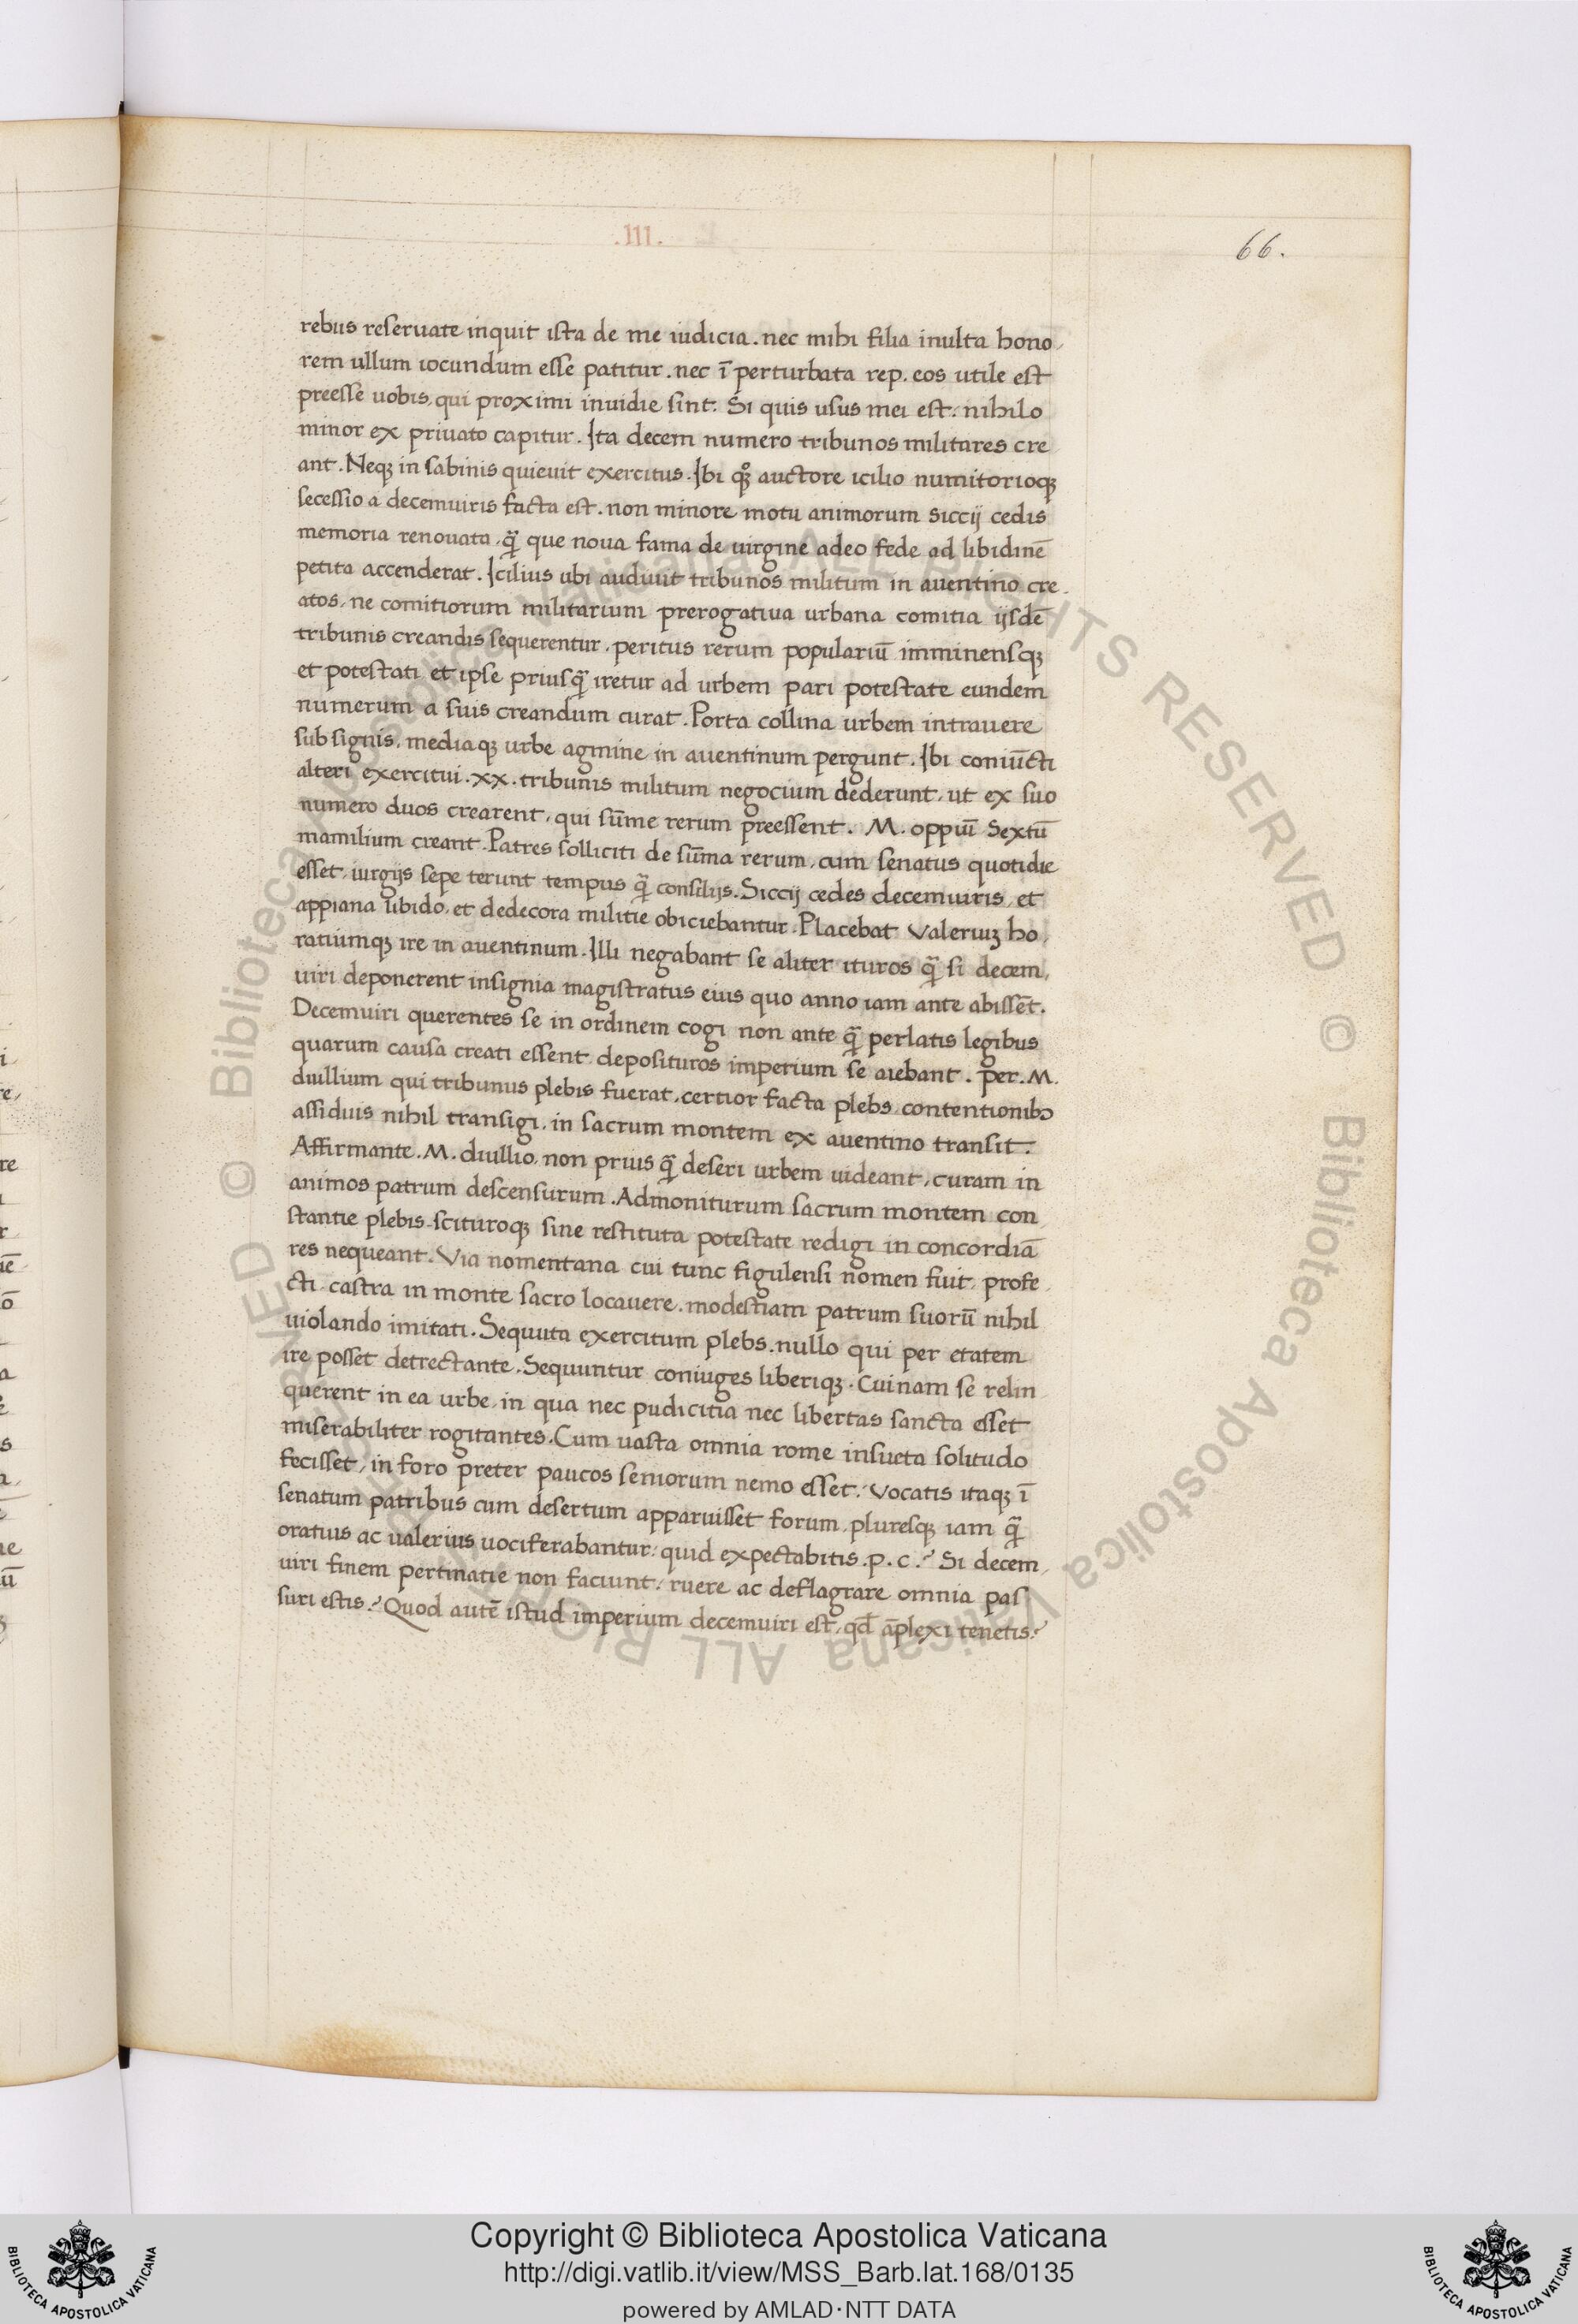 .III.
66.
rebus reseruate inquit ista de me iudicia. nec mihi filia inulta hono,
rem ullum iocundum esse patitur. nec ī perturbata rep. eos utile est
preesse uobis, qui proximi inuidie sint. Si quis usus mei est. nihilo
minor ex priuato capitur. Ita decem numero tribunos militares cre
ant. Neqȝ in sabinis quieuit exercitus. Ibi qȝͦ auctore icilio numitorioqȝ
secessio a decemuiris facta est. non minore motu animorum siccij cedis
memoria renouata, q̄ que noua fama de uirgine adeo fede ad libidinē
petita accenderat. Icilius ubi audiuit tribunos militum in auentino cre,
atos, ne comitiorum militarium prerogatiua urbana comitia ijsdē
tribunis creandis sequerentur, peritus rerum populariū imminensqȝ
et potestati et ipse priusq̄ iretur ad urbem pari potestate eundem
numerum a suis creandum curat. Porta collina urbem intrauere
sub signis, mediaqȝ urbe agmine in auentinum pergunt. Ibi coniūcti
alteri exercitui. xx. tribunis militum negocium dederunt, ut ex suo
numero duos crearent, qui sūme rerum preessent. M. oppiū Sextū
mamilium creant. Patres solliciti de sūma rerum, cum senatus quotidie
esset, iurgijs sepe terunt tempus q̄ consilijs. Siccij cedes decemuiris, et
appiana libido, et dedecora militie obiciebantur. Placebat Valeriuȝ ho,
ratiumqȝ ire in auentinum. Illi negabant se aliter ituros q̄ si decem,
uiri deponerent insignia magistratus eius quo anno iam ante abissēt.
Decemuiri querentes se in ordinem cogi non ante q̄ perlatis legibus
quarum causa creati essent deposituros imperium se aiebant. Per. M.
duillium qui tribunus plebis fuerat, certior facta plebs contentionibꝫ
assiduis nihil transigi, in sacrum montem ex auentino transit.
Affirmante. M. duillio, non prius q̄ deseri urbem uideant, curam in
animos patrum descensurum. Admoniturum sacrum montem con
stantie plebis, scituroqȝ sine restituta potestate redigi in concordiā
res nequeant. Via nomentana cui tunc figulensi nomen fuit, profe,
cti castra in monte sacro locauere. modestiam patrum suorū nihil
uiolando imitati. Sequuta exercitum plebs. nullo qui per etatem
ire posset detrectante. Sequuntur coniuges liberiqȝ. Cuinam se relin
querent in ea urbe, in qua nec pudicitia nec libertas sancta esset
miserabiliter rogitantes. Cum uasta omnia rome insueta solitudo
fecisset, in foro preter paucos seniorum nemo esset. Vocatis itaqȝ ī
senatum patribus cum desertum apparuisset forum, pluresqȝ iam q̄
oratius ac ualerius uociferabantur: quid expectabitis. p. c.? Si decem,
uiri finem pertinatie non faciunt: ruere ac deflagrare omnia pas
suri estis? Quod autē istud imperium decemuiri est, qd̄ āplexi tenetis?
© Biblioteca Apostolica Vaticana ALL RIGHTS RESERVED © Biblioteca Apostolica Vaticana ALL RIGHTS RESERVED
Copyright © Biblioteca Apostolica Vaticana
http://digi.vatlib.it/view/MSS_Barb.lat.168/0135
powered by AMLAD·NTT DATA
BIBLIOTECA APOSTOLICA VATICANA
BIBLIOTECA APOSTOLICA VATICANA